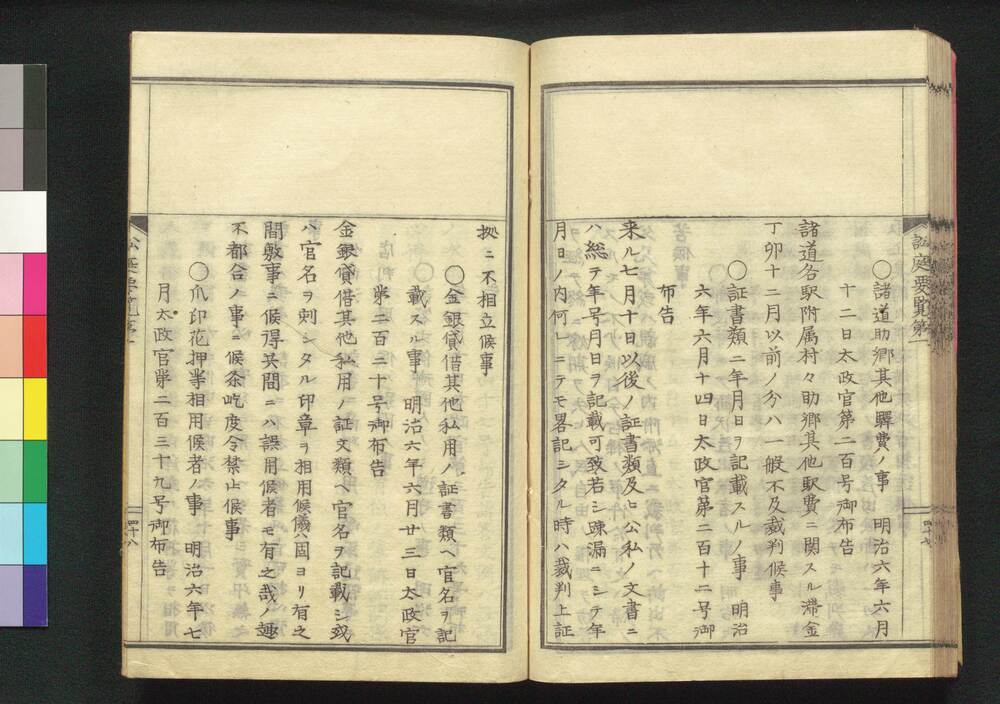 訟庭要覧第一
○諸道助郷其他驛費ノ事　明治六年六月
十二日太政官第二百号御布告
諸道各駅附属村々助郷其他駅費ニ関スル滞金
丁卯十二月以前ノ分ハ一般不及裁判候事
○証書類ニ年月日ヲ記載スルノ事　明治
六年六月十四日太政官第二百十二号御
布告
来ル七月十日以後ノ証書類及ヒ公私ノ文書ニ
ハ総テ年号月日ヲ記載可致若シ疎漏ニシテ年
月日ノ内何レニテモ畧記シタル時ハ裁判上証
四十七
拠ニ不相立候事
○金銀貸借其他私用ノ証書類ヘ官名ヲ記
載スル事　明治六年六月廿三日太政官
第二百二十号御布告
金銀貸借其他私用ノ証文類ヘ官名ヲ記載シ或
ハ官名ヲ刻シタル印章ヲ相用候儀ハ固ヨリ有之
間敷事ニ候得共間ニハ誤用候者モ有之哉ノ趣
不都合ノ事ニ候条屹度令禁止候事
○爪印花押等相用候者ノ事　明治六年七
月太政官第二百三十九号御布告
訟庭要覧第一
四十八